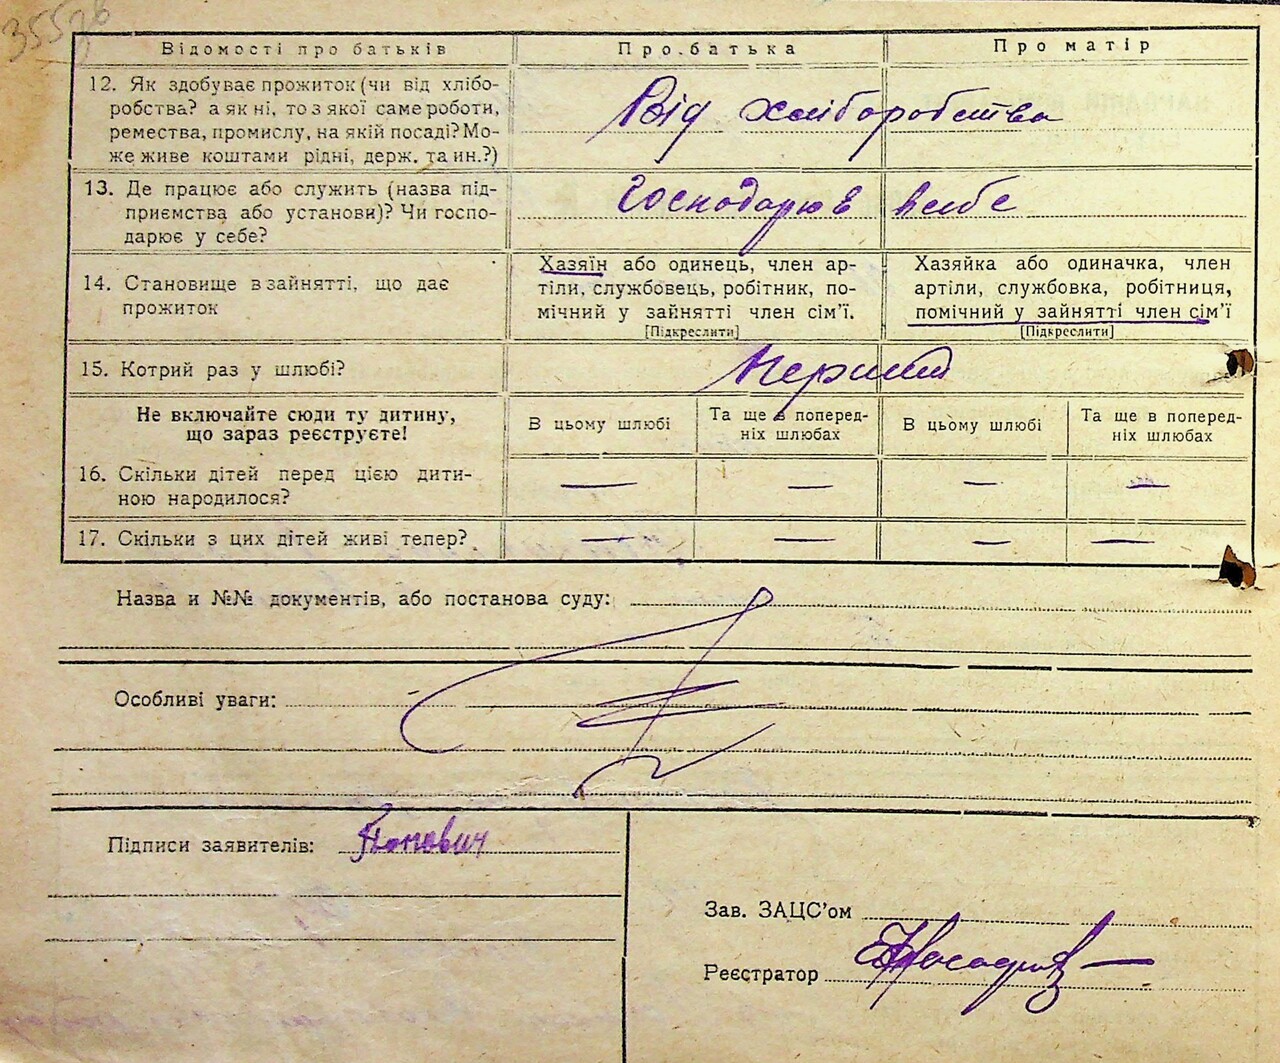 35526
Відомості про батьків
Про батька
Про матір
12. Як здобуває прожиток (чи від хлібо-
робства? а як ні, то з якої саме роботи,
ремества, промислу, на якій посаді? Мо-
же живе коштами рідні, держ. та ин.?)
Від хліборобства
13. Де працює або служить (назва під-
приємства або установи)? Чи госпо-
дарює у себе?
Господарюв в себе
14. Становище в зайнятті, що дає
прожиток
Хазяїн або одинець, член ар-
тіли, службовець, робітник, по-
мічний у зайнятті член сім'ї.
[Підкреслити]
Хазяйка або одиначка, член
артіли, службовка, робітниця,
помічний у зайнятті член сім'ї
[Підкреслити]
15. Котрий раз у шлюбі?
Перший
Не включайте сюди ту дитину,
що зараз реєструєте!
В цьому шлюбі
Та ще в поперед-
ніх шлюбах
В цьому шлюбі
Та ще в поперед-
ніх шлюбах
16. Скільки дітей перед цією дити-
ною народилося?
— — — —
17. Скільки з цих дітей живі тепер?
— — — —
Назва и №№ документів, або постанова суду:
Особливі уваги:
Підписи заявителів: Попович
Зав. ЗАЦС'ом
Реєстратор